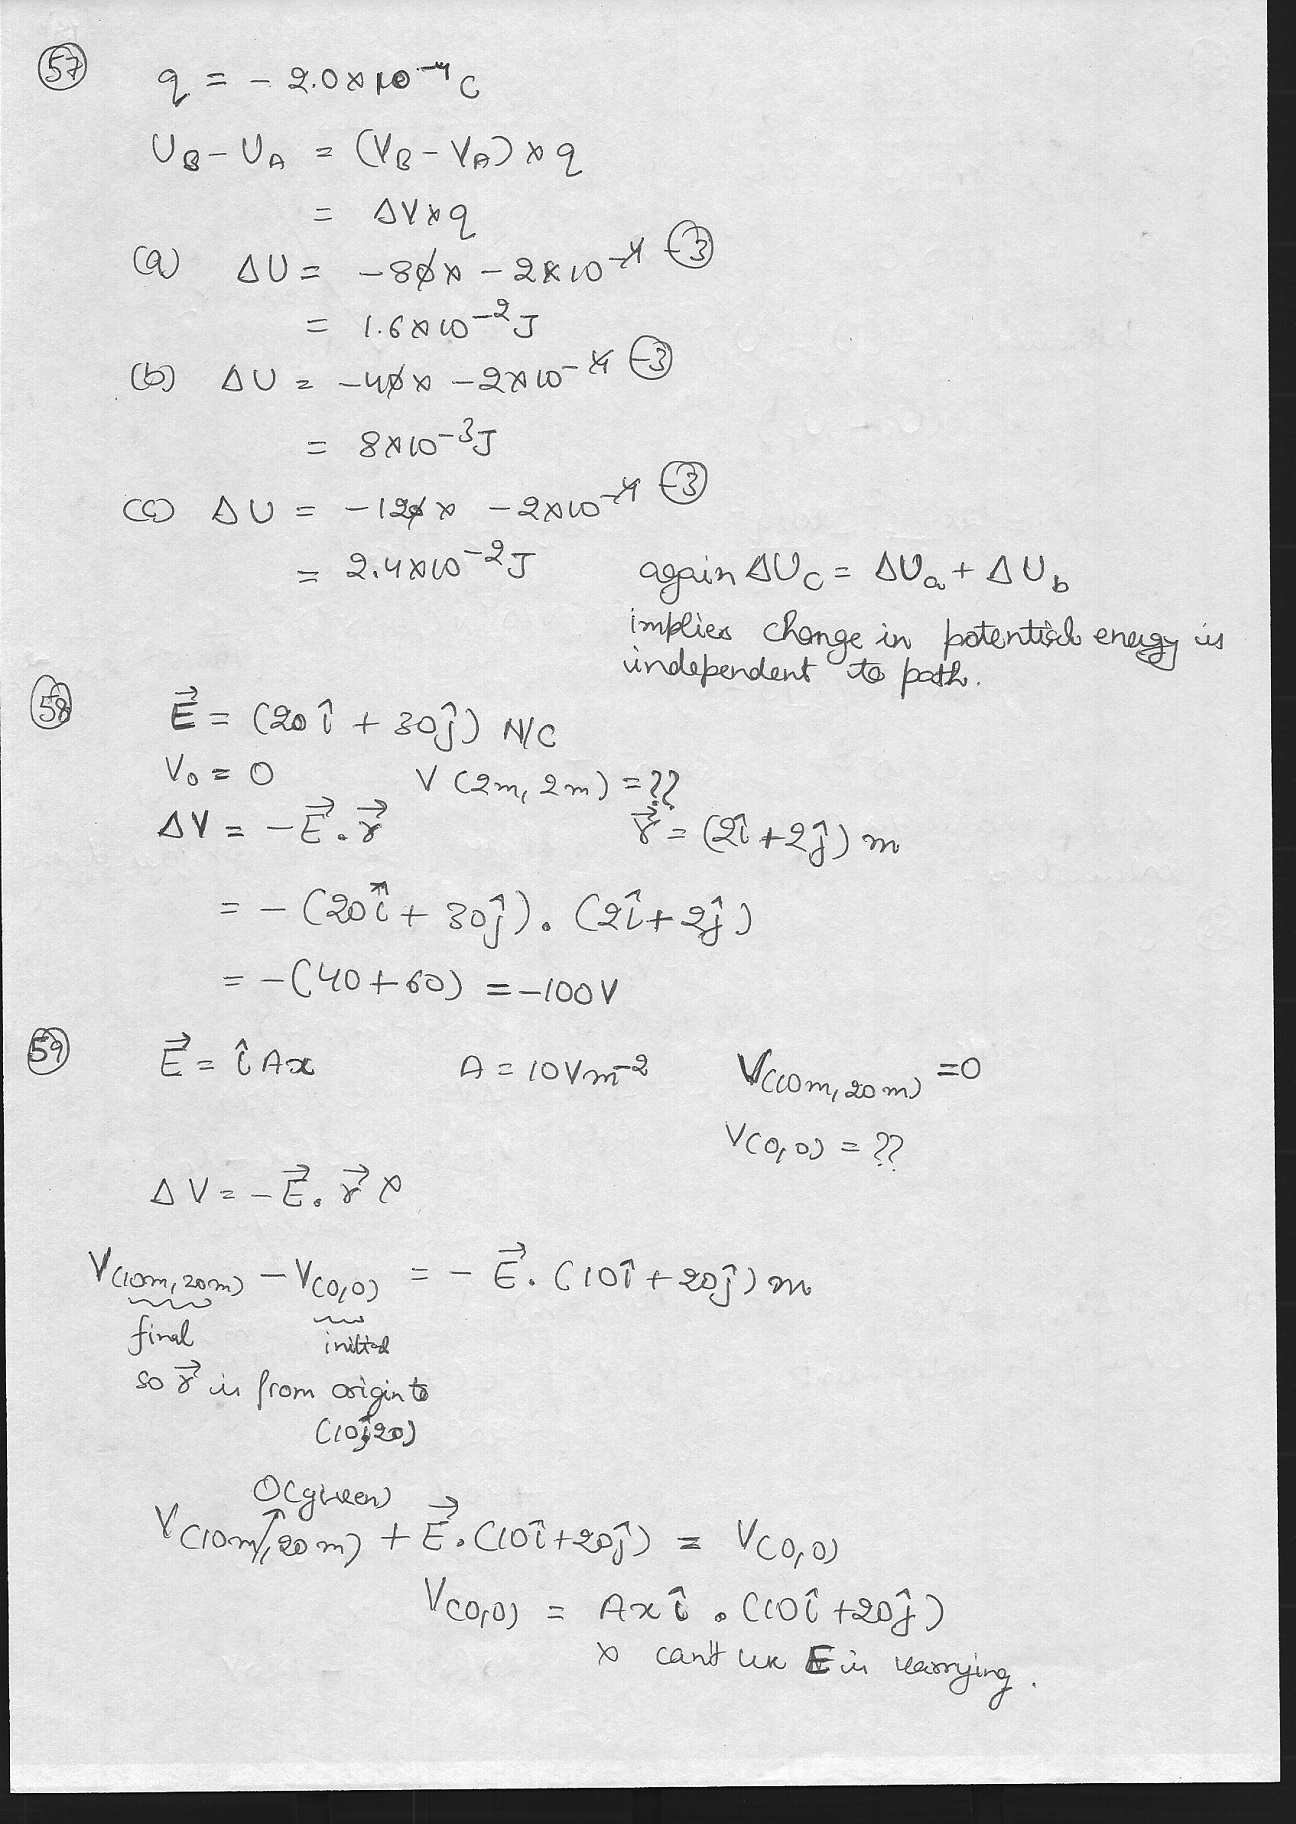 57 q = - 2.0×10⁻⁴ C
U_B - U_A = (V_B - V_A) × q
= ΔV × q
(a) ΔU = -80 × -2×10⁻⁴ -3
= 1.6×10⁻² J
(b) ΔU = -40 × -2×10⁻⁴ -3
= 8×10⁻³ J
(c) ΔU = -120 × -2×10⁻⁴ -3
= 2.4×10⁻² J again ΔU_C = ΔU_a + ΔU_b
implies change in potential energy is
independent to path.
58 E⃗ = (20î + 30ĵ) N/C
V₀ = 0 V(2m, 2m) = ??
ΔV = -E⃗ . r⃗ r⃗ = (2î + 2ĵ) m
= -(20î + 30ĵ) . (2î + 2ĵ)
= -(40+60) = -100V
59 E⃗ = î Ax A = 10Vm⁻² V(10m, 20m) = 0
V(0,0) = ??
ΔV = -E⃗ . r⃗ ×
V(10m, 20m) - V(0,0) = - E⃗ . (10î + 20ĵ) m
final initial
so r⃗ is from origin to
(10,20)
0(given)
V(10m, 20m) + E⃗ . (10î + 20ĵ) = V(0,0)
V(0,0) = Ax î . (10î + 20ĵ)
× can't use E is varrying.